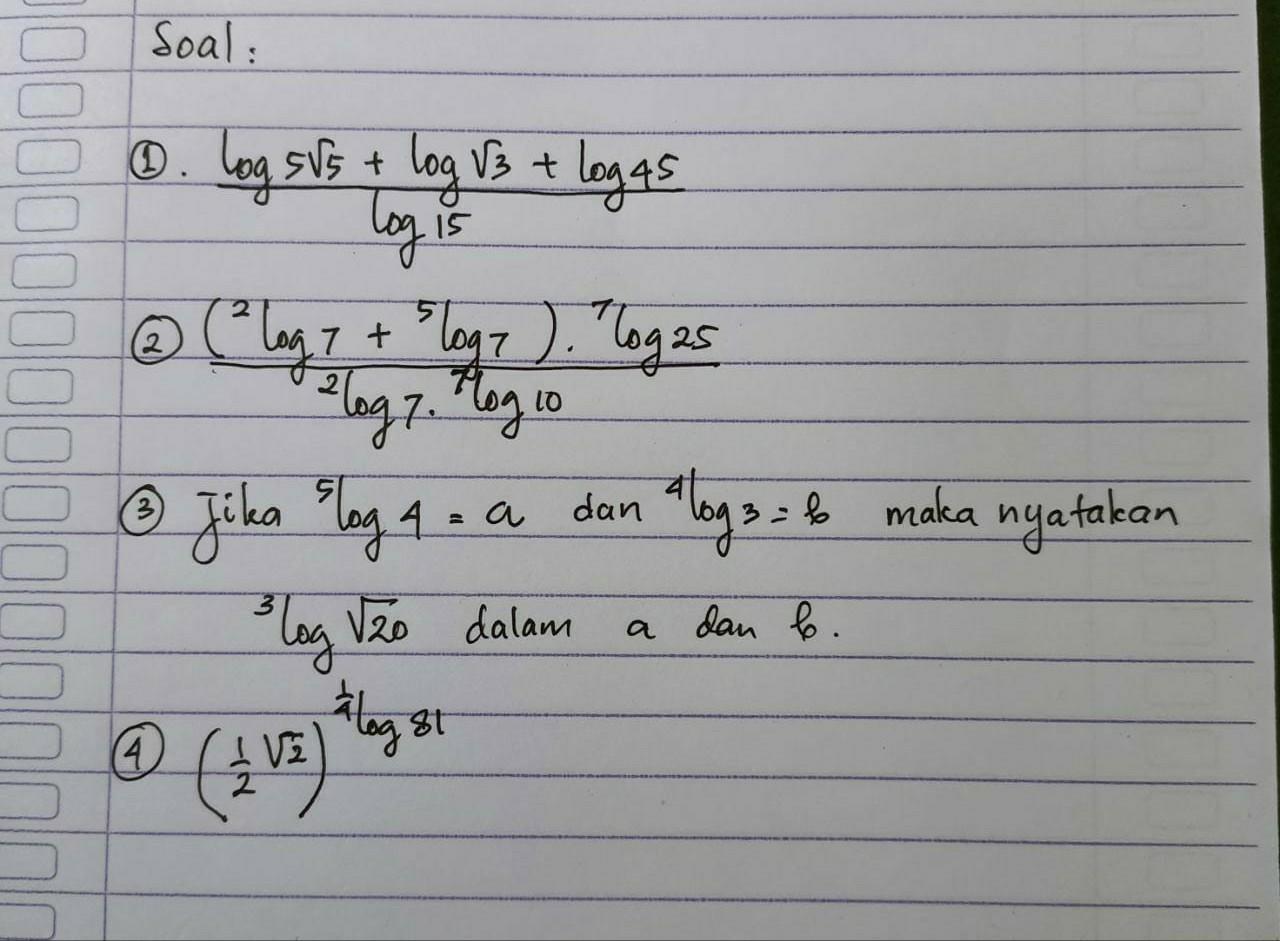 Soal:
①. log 5√5 + log √3 + log 45
log 15
② (²log 7 + ⁵log 7). ⁷log 25
²log 7. ⁷log 10
③ Jika ⁵log 4 = a dan ⁴log 3 = b maka nyatakan
³log √20 dalam a dan b.
④ (1/2 √2)^(¼log 81)